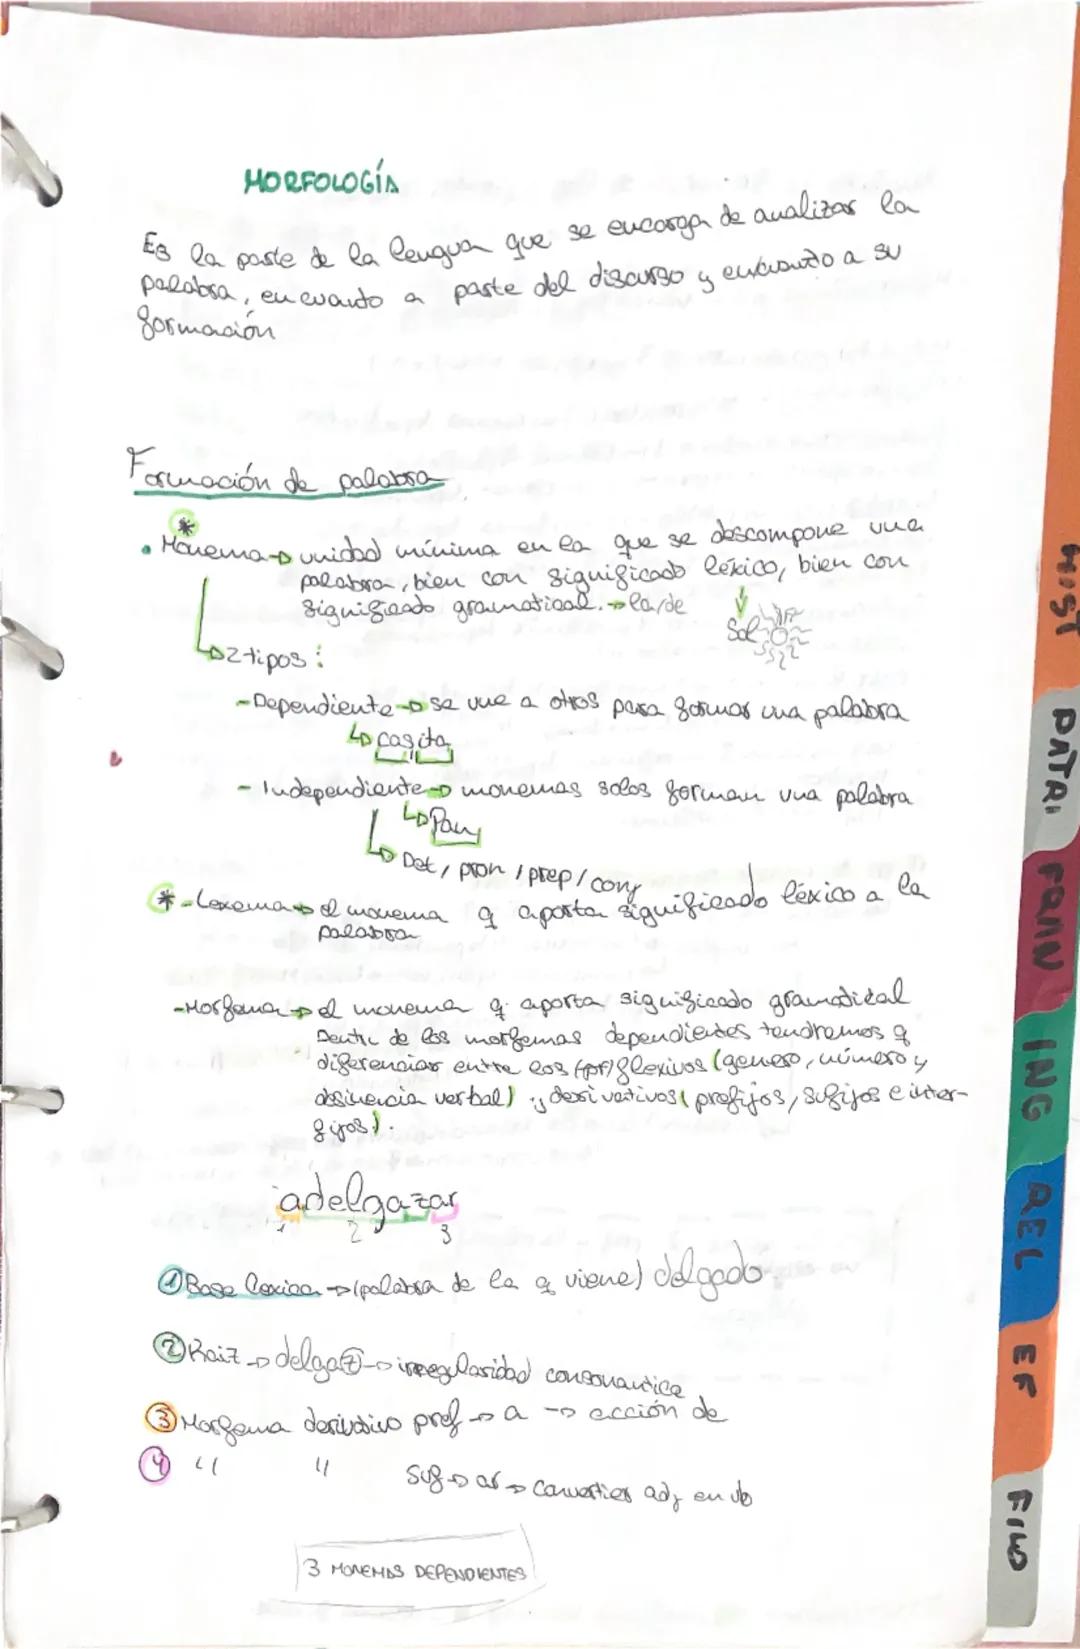 MORFOLOGÍA
Es la parte de la lengua que se encarga de analizar la
palabra, en cuanto a parte del discurso y en cuanto a su
formación
Formación de palabra
* 
• Monema → unidad mínima en la que se descompone una
palabra, bien con significado léxico, bien con
significado gramatical. → la/de
Sol
→ 2 tipos:
- Dependiente → se une a otros para formar una palabra
↳ casita
- Independiente → monemas solos forman una palabra
↳ Pan
↳ Det / pron / prep / conj
* - Lexema → el monema q aporta significado léxico a la
palabra
- Morfema → el monema q aporta significado gramatical
Dentro de los morfemas dependientes tendremos q
diferenciar entre los flexivos (genero, número y
desinencia verbal) y derivativos (prefijos, sufijos e inter-
fijos).
adelgazar
1 2 3
① Base lexica → (palabra de la q viene) delgado
② Raiz → delgaz → irregularidad consonantica
③ Morfema derivativo pref → a → acción de
④ " " suf → ar → convertir adj en vb
3 MONEMAS DEPENDIENTES
HIST
PATRI
FRAN
ING
REL
EF